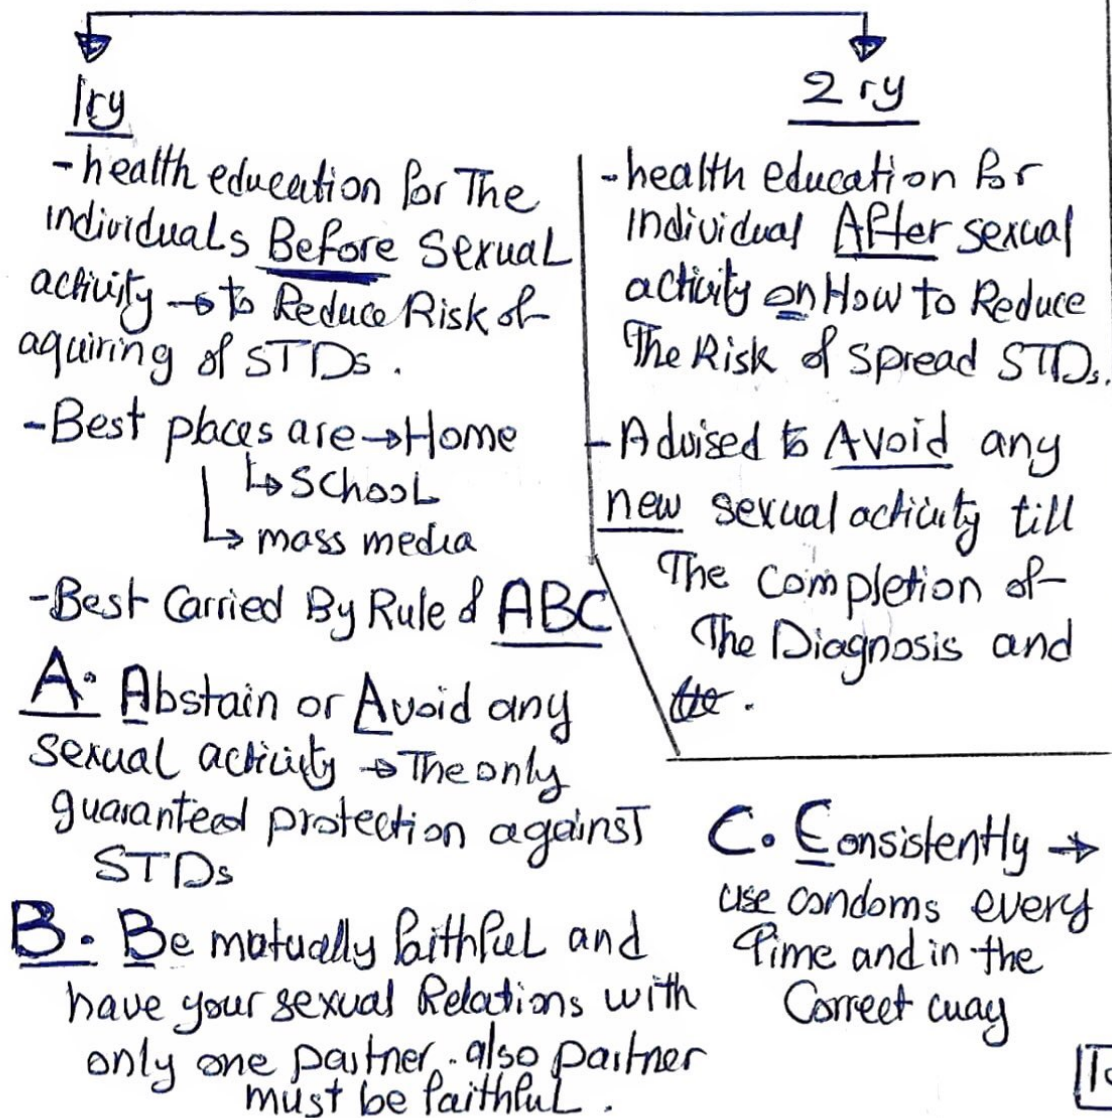 1ry
-health education for The
individuals Before sexual
activity → to Reduce Risk of
aquiring of STDs.
-Best places are → Home
↳ School
↳ mass media
-Best Carried By Rule of ABC
A. Abstain or Avoid any
sexual activity → The only
guaranteed protection against
STDs
B. Be mutually faithful and
have your sexual Relations with
only one partner. also partner
must be faithful.
2ry
-health education for
individual After sexual
activity on How to Reduce
The Risk of spread STDs.
-Advised to Avoid any
new sexual activity till
The completion of
The Diagnosis and
C. Consistently →
use condoms every
Time and in the
Correct way